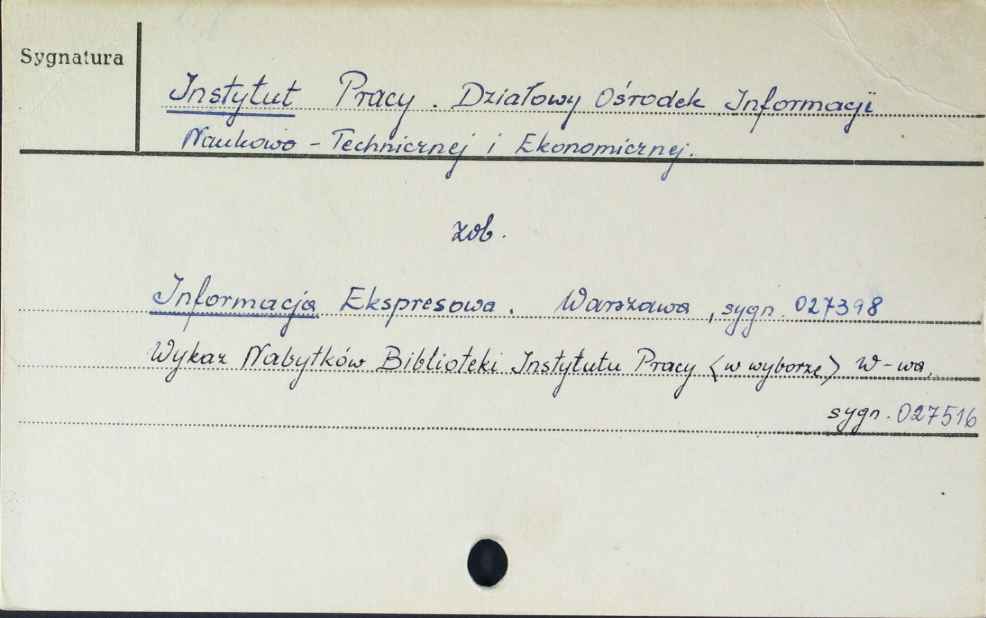 Sygnatura
Instytut Pracy. Działowy Ośrodek Informacji
Naukowo - Technicznej i Ekonomicznej.
zob.
Informacja Ekspresowa. Warszawa, sygn. 027398
Wykaz Nabytków Biblioteki Instytutu Pracy (w wyborze) W-wa,
sygn. 027516